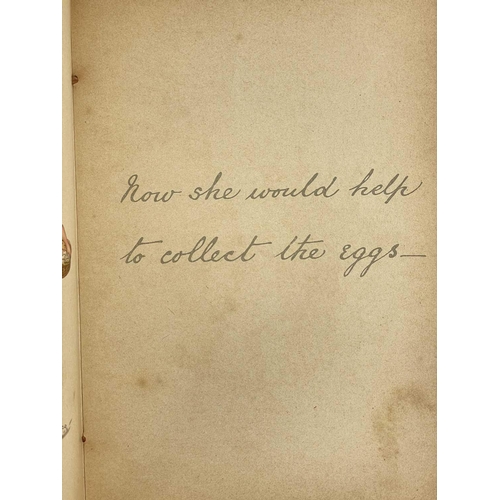 Now she would help
to collect the eggs—